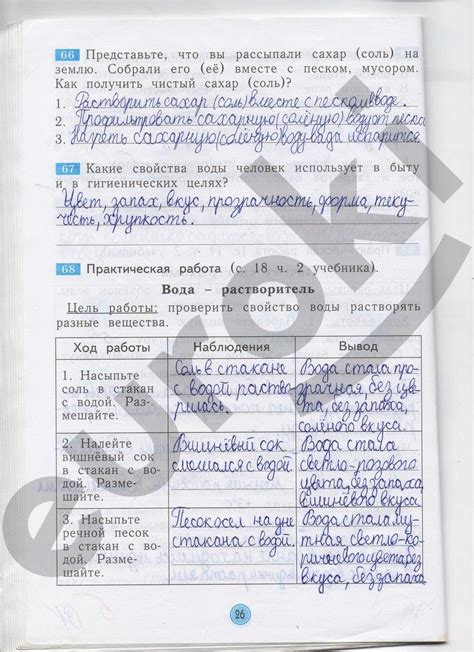 66 Представьте, что вы рассыпали сахар (соль) на
землю. Собрали его (её) вместе с песком, мусором.
Как получить чистый сахар (соль)?
1. Растворить сахар (соль) вместе с песком в воде.
2. Профильтровать сахарную (солёную) воду от песка
3. Нагреть сахарную (солёную) воду вода испарится.
67 Какие свойства воды человек использует в быту
и в гигиенических целях?
Цвет, запах, вкус, прозрачность, форма, теку-
честь, хрупкость.
68 Практическая работа (с. 18 ч. 2 учебника).
Вода – растворитель
Цель работы: проверить свойство воды растворять
разные вещества.
Ход работы
Наблюдения
Вывод
1. Насыпьте
соль в стакан
с водой. Раз-
мешайте.
Соль в стакане
с водой раство
рилась.
Вода стала про-
зрачная, без цве-
та, без запаха,
солёного вкуса.
2. Налейте
вишнёвый сок
в стакан с во-
дой. Разме-
шайте.
Вишнёвый сок
смешался с водой.
Вода стала
светло-розового
цвета, без запаха,
вишнёвого вкуса.
3. Насыпьте
речной песок
в стакан с во-
дой. Разме-
шайте.
Песок осел на дне
стакана с водой.
Вода стала му-
тная светло-ко-
ричневого цвета без
вкуса, без запаха.
26
euroki